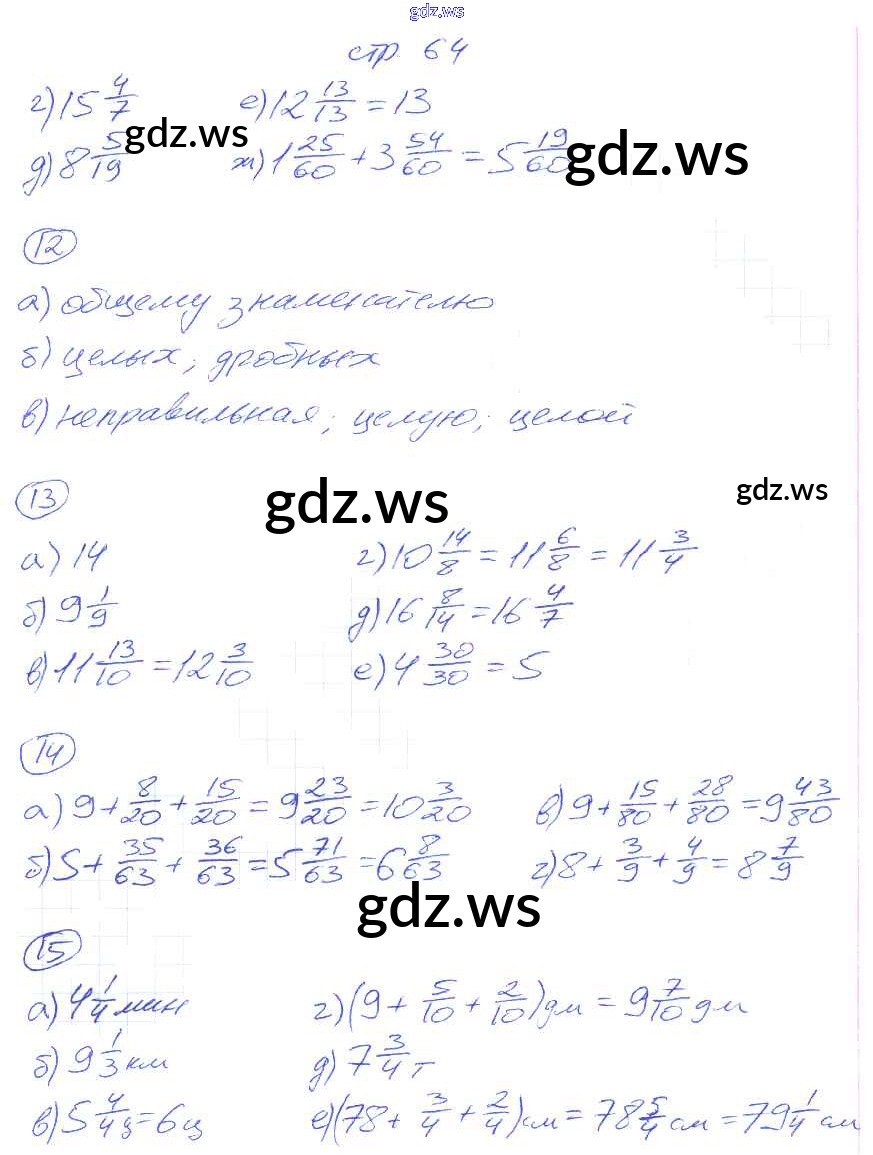 gdz.ws
стр. 64
г) 15 4/7 е) 12 13/13 = 13
gdz.ws gdz.ws
д) 8 5/19 ж) 1 25/60 + 3 54/60 = 5 19/60
12
а) общему знаменателю
б) целых; дробных
в) неправильная; целую; целой
13
gdz.ws gdz.ws
а) 14 г) 10 14/8 = 11 6/8 = 11 3/4
б) 9 1/9 д) 16 8/14 = 16 4/7
в) 11 13/10 = 12 3/10 е) 4 30/30 = 5
14
а) 9 + 8/20 + 15/20 = 9 23/20 = 10 3/20 в) 9 + 15/80 + 28/80 = 9 43/80
б) 5 + 35/63 + 36/63 = 5 71/63 = 6 8/63 г) 8 + 3/9 + 4/9 = 8 7/9
gdz.ws
15
а) 4 1/4 мин г) (9 + 5/10 + 2/10) дм = 9 7/10 дм
б) 9 1/3 км д) 7 3/4 т
в) 5 4/4 ц = 6 ц е) (78 + 3/4 + 2/4) см = 78 5/4 см = 79 1/4 см